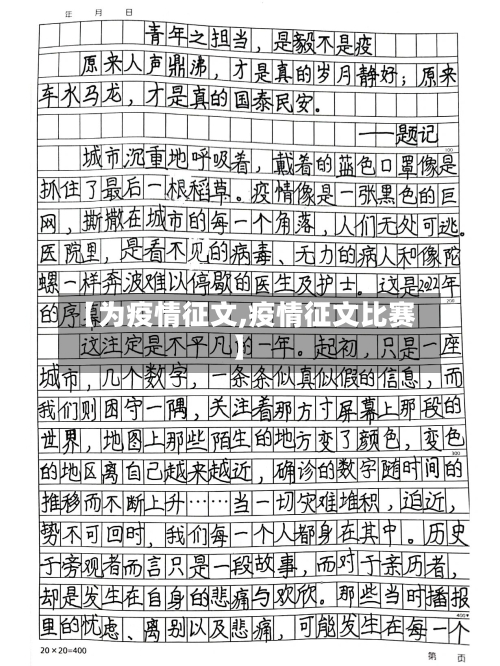 年 月 日
青年之担当，是毅不是疫
原来人声鼎沸，才是真的岁月静好；原来
车水马龙，才是真的国泰民安。
——题记
100
城市沉重地呼吸着，戴着的蓝色口罩像是
抓住了最后一根稻草。疫情像是一张黑色的巨
网，撕撒在城市的每一个角落，人们无处可逃。
医院里，是看不见的病毒、无力的病人和像陀
螺一样奔波难以停歇的医生及护士。这是2022年
200
的序幕
【为疫情征文,疫情征文比赛
】
这注定是不平凡的一年。起初，只是一座
城市，几个数字，一条条似真似假的信息，而
我们则困守一隅，关注着那方寸屏幕上那段的
世界，地图上那些陌生的地方变了颜色，变色
300
的地区离自己越来越近，确诊的数字随时间的
推移而不断上升……当一切灾难堆积，迫近，
势不可回时，我们每一个人都身在其中。历史
于旁观者而言只是一段故事，而对于亲历者，
却是发生在自身的悲痛与欢欣。那些当时播报
400
里的忧虑、离别以及悲痛，可能发生在每一个
20×20=400
第 页